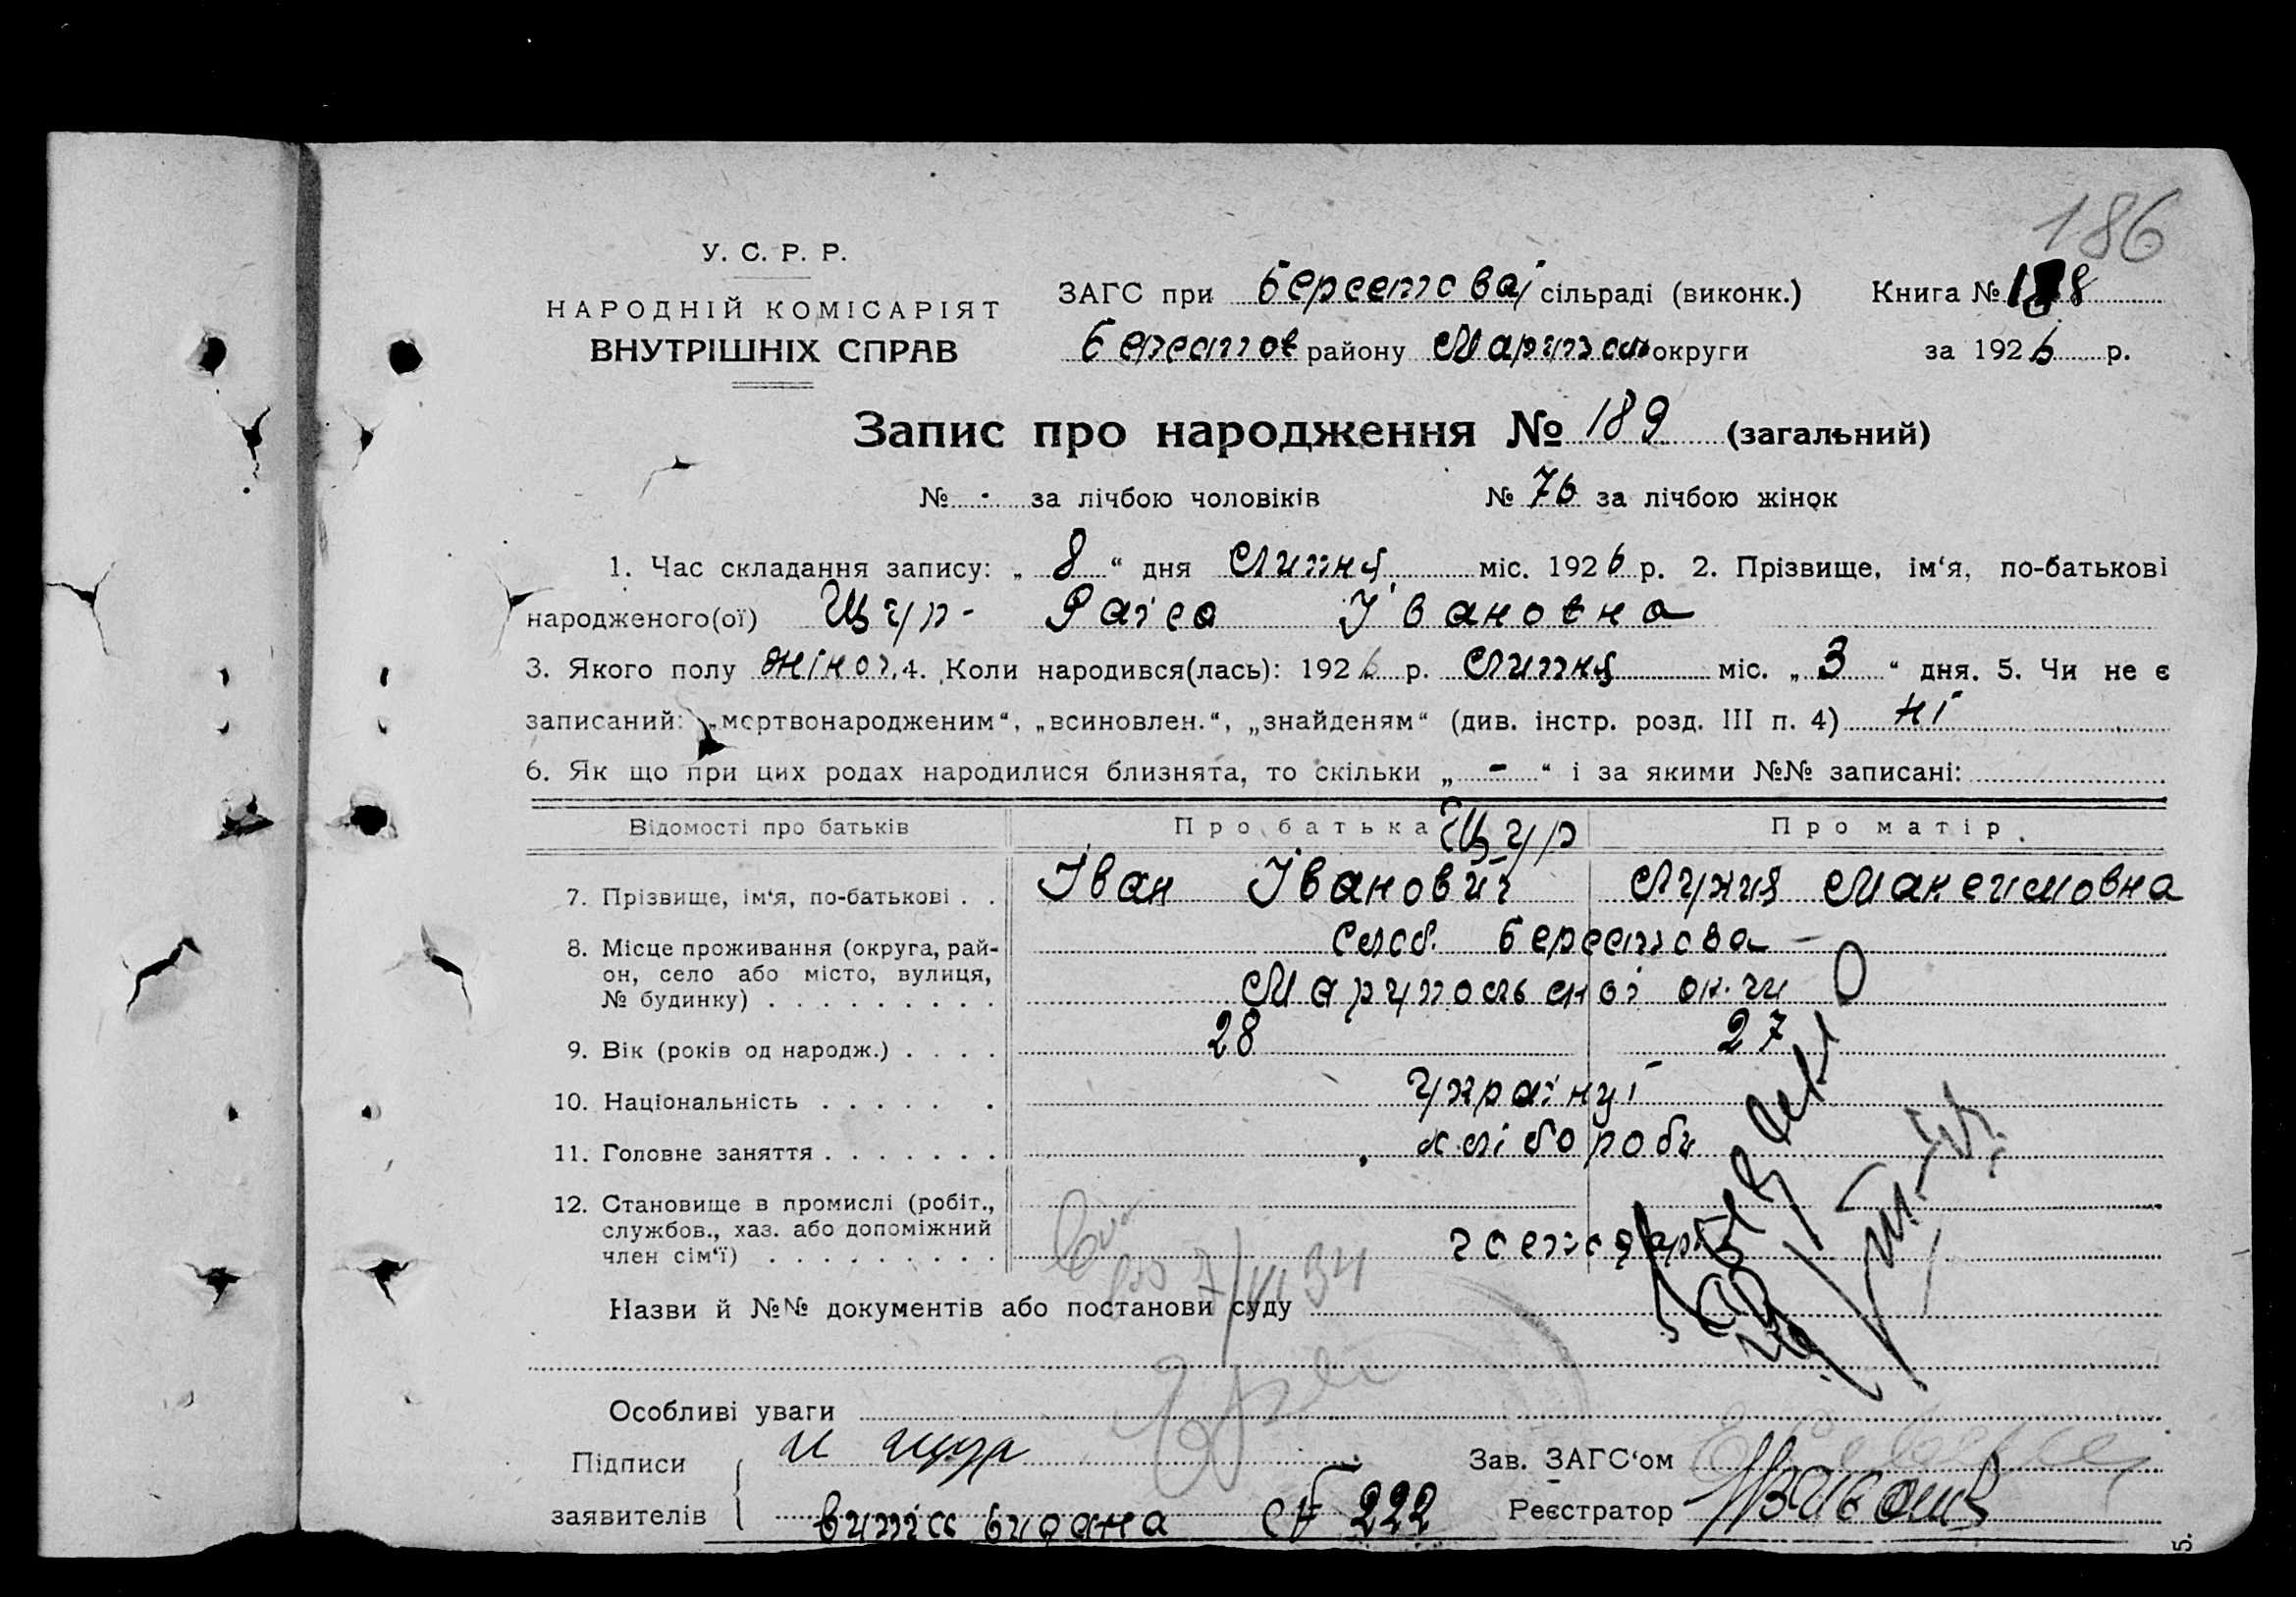 186
У. С. Р. Р.
НАРОДНІЙ КОМІСАРІЯТ
ВНУТРІШНІХ СПРАВ
ЗАГС при Берестовій сільраді (виконк.) Книга № 188
Берестов району Маріупол округи за 1926 р.
Запис про народження № 189 (загальний)
№ - за лічбою чоловіків № 76 за лічбою жінок
1. Час складання запису: „ 8 “ дня Липня міс. 1926 р. 2. Прізвище, ім‘я, по-батькові
народженого(ої) Щур - Раїса Івановна
3. Якого полу жіноч. 4. Коли народився(лась): 1926 р. Липня міс. „ 3 “ дня. 5. Чи не є
записаний: „мертвонародженим“, „всиновлен.“, „знайденям“ (див. інстр. розд. III п. 4) ні
6. Як що при цих родах народилися близнята, то скільки „ - “ і за якими №№ записані:
Відомості про батьків Про батька Щур Про матір
7. Прізвище, ім‘я, по-батькові . . Іван Іванович Лукия Максимовна
8. Місце проживання (округа, рай-
он, село або місто, вулиця,
№ будинку) . . . . . . . . .
Слоб. Берестова -
Маріупольської ок-ги
9. Вік (років од народж.) . . . . 28 27
10. Національність . . . . . . українці
11. Головне заняття . . . . . . . хлібороби
12. Становище в промислі (робіт.,
службов., хаз. або допоміжний
член сім‘ї) . . . . . . . . .
господарі
7/VI 34
Назви й №№ документів або постанови суду
Особливі уваги
Підписи
заявителів
И Щур
Зав. ЗАГС‘ом
Реєстратор
випис видана № 222
5.